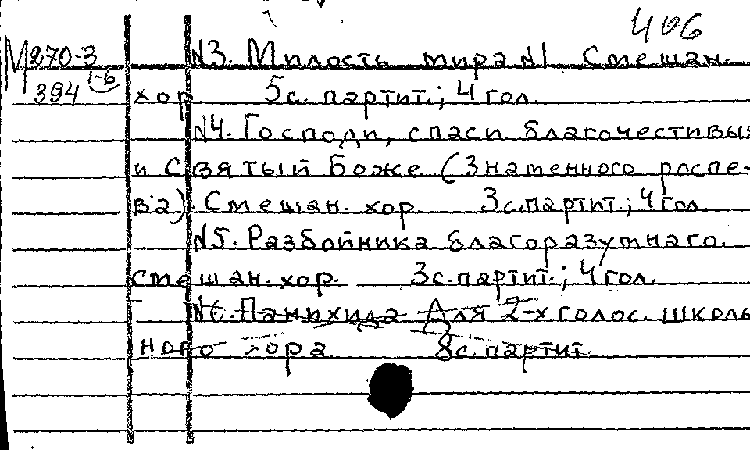 406
М270-3 N3. Милость мира N1 Смешан.
394 1-6 хор 5с. партит.; 4 гол.
N4. Господи, спаси благочестивыя
и Святый Боже (Знаменного роспе-
ва). Смешан. хор. 3с. партит.; 4 гол.
N5. Разбойника благоразумнаго.
Смешан. хор. 3с. партит.; 4 гол.
N6. Панихида Для 2-х голос. школь
ного хора 8с. партит.